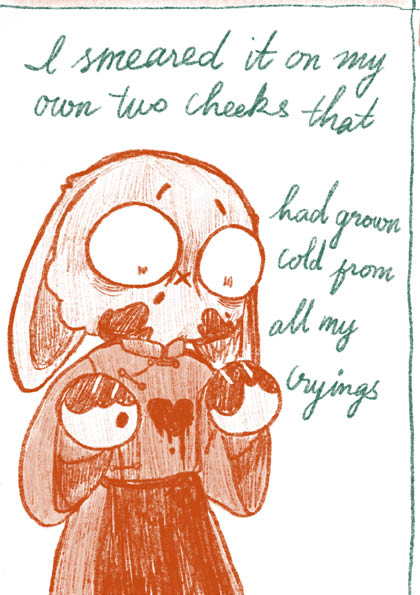 I smeared it on my
own two cheeks that
had grown
cold from
all my
cryings